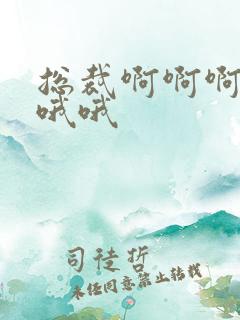 总裁啊啊啊
哦哦
司徒哲
未经同意禁止转载